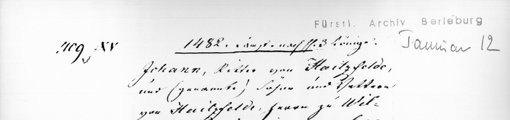 Fürstl. Archiv Berleburg
1482. Dienst. nach hl. 3 Könige. Januar 12
Johann, Ritter von Haitzfelde,
und (genannte) Söhne und Vettern
von Haitzfelde, Herrn zu Wil-